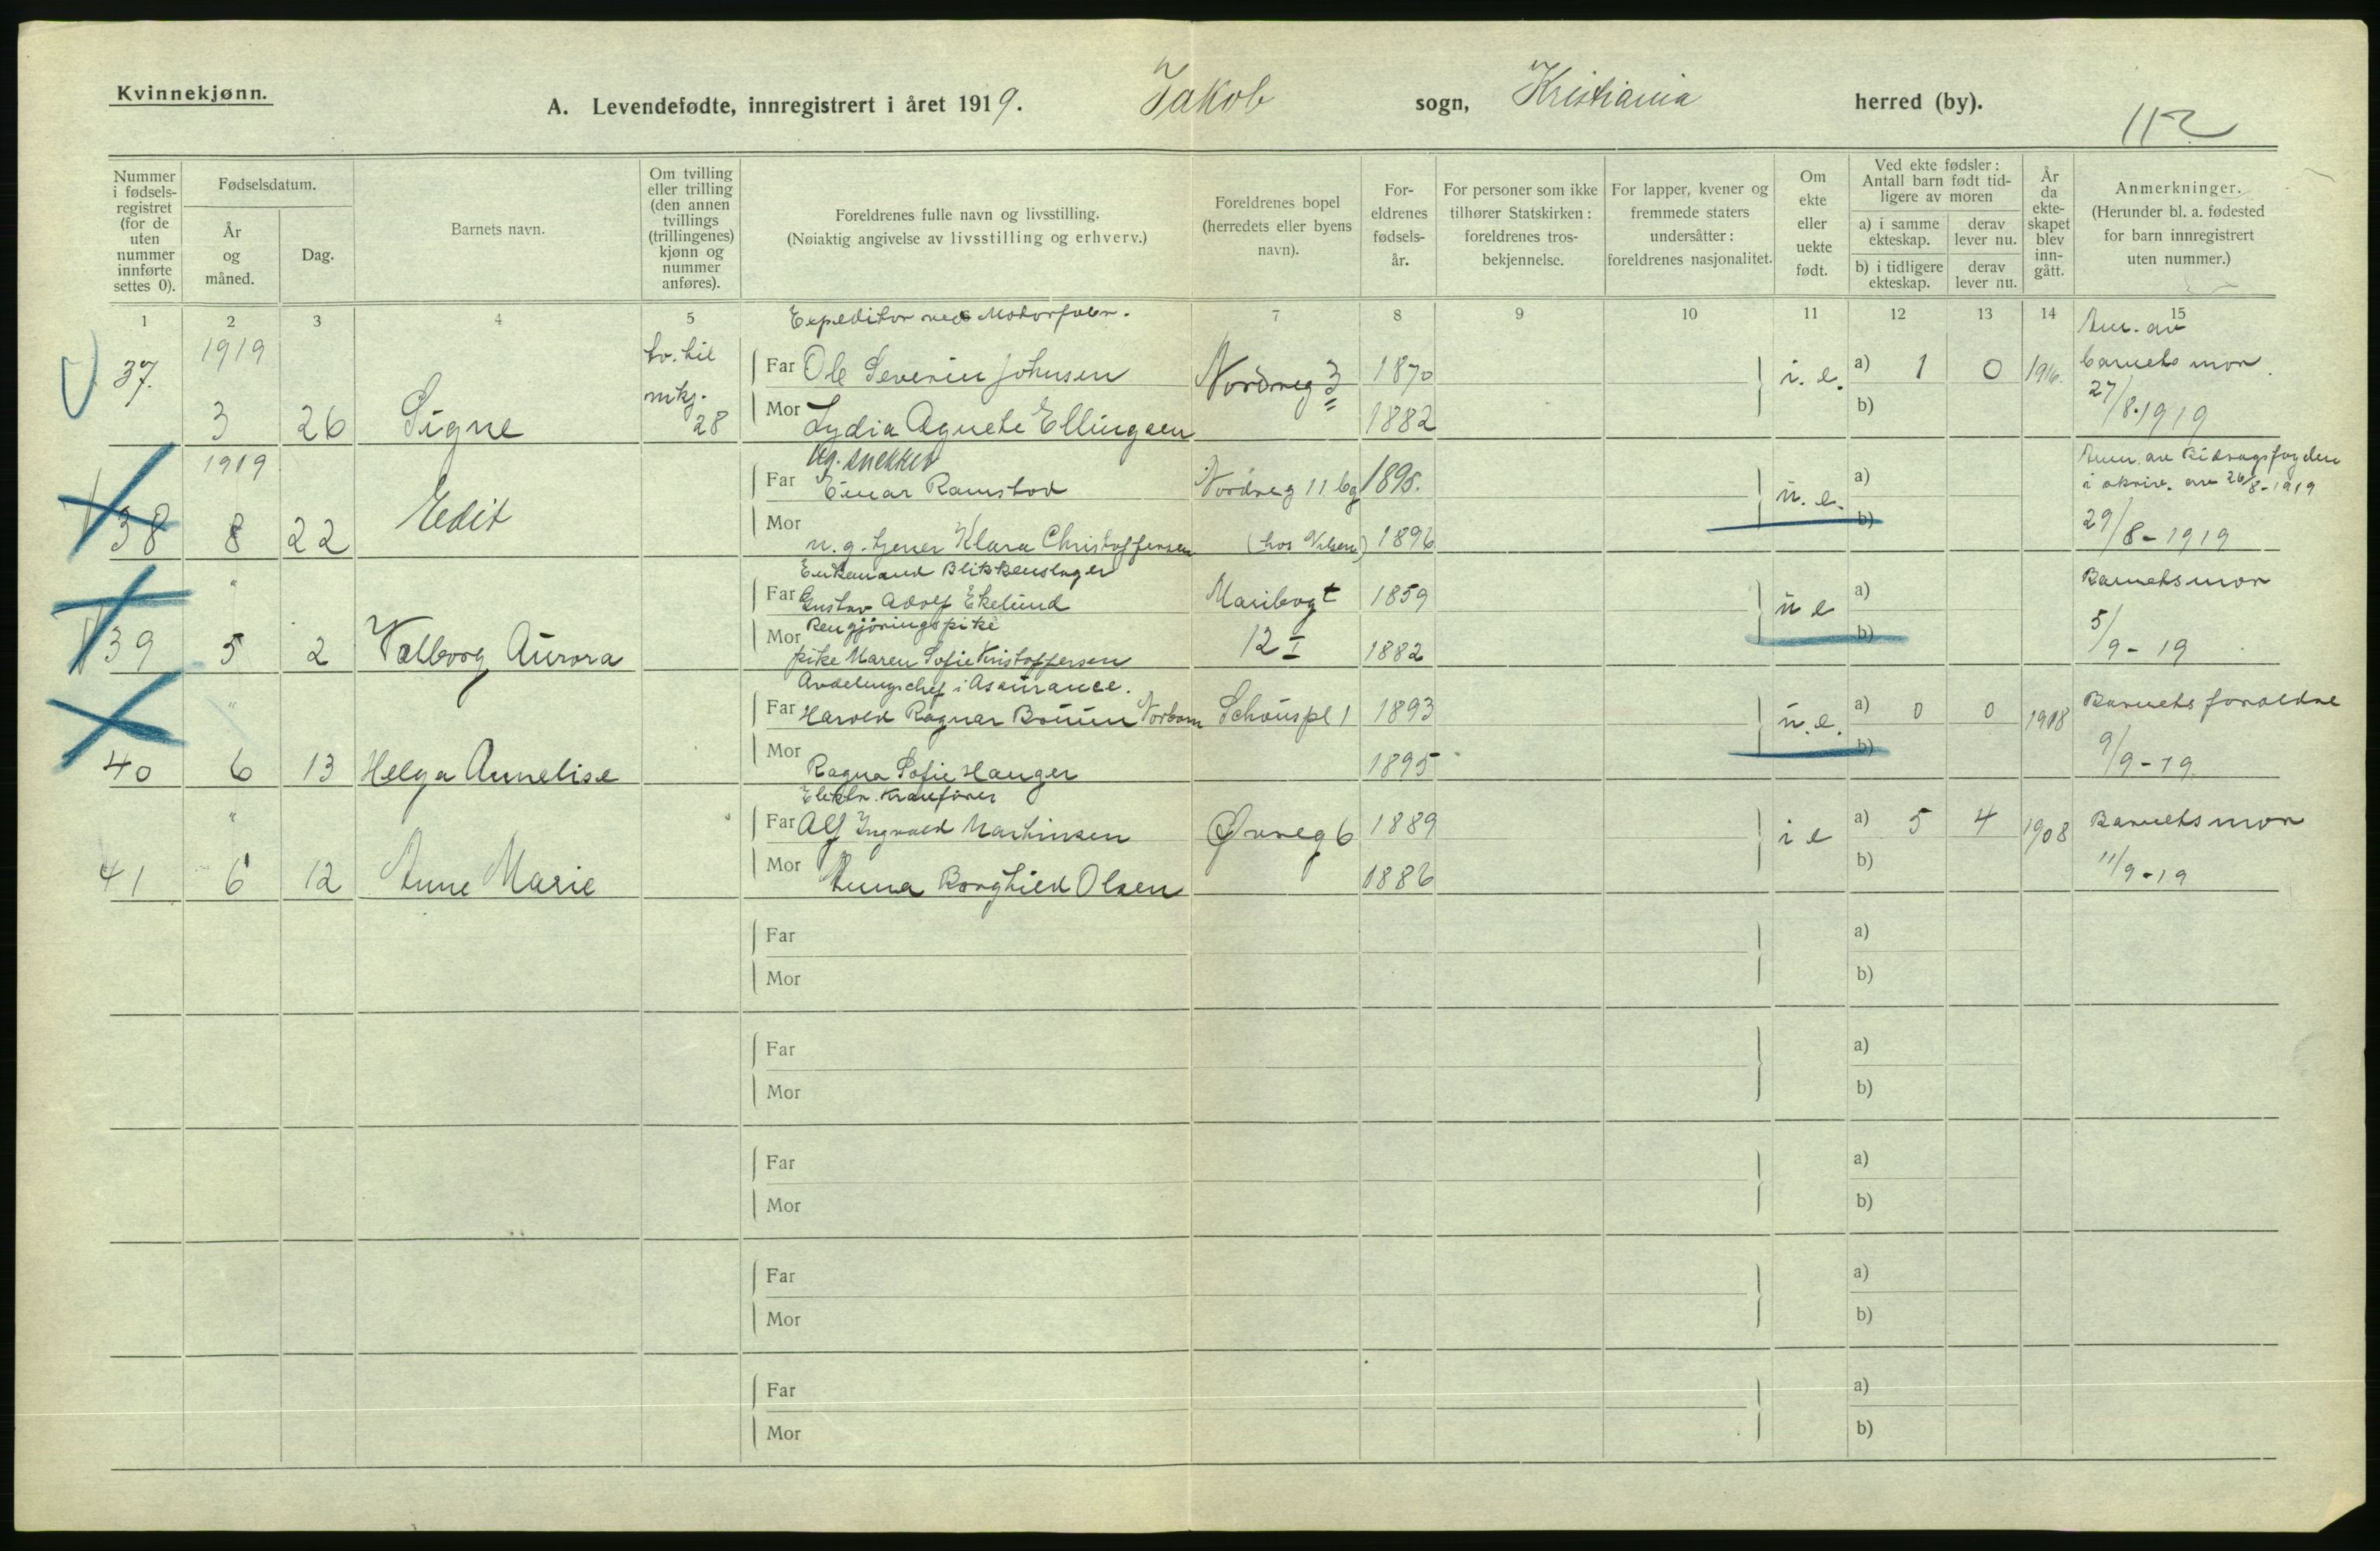 Kvinnekjønn.
A. Levendefødte, innregistrert i året 1919. Jakob sogn, Kristiania herred (by).
112
Nummer i fødsels-registret (for de uten nummer innførte settes 0).
Fødselsdatum.
År og måned.
Dag.
Barnets navn.
Om tvilling eller trilling (den annen tvillings (trillingenes) kjønn og nummer anføres).
Foreldrenes fulle navn og livsstilling.
(Nøiaktig angivelse av livsstilling og erhverv.)
Foreldrenes bopel (herredets eller byens navn).
For-eldrenes fødsels-år.
For personer som ikke tilhører Statskirken: foreldrenes tros-bekjennelse.
For lapper, kvener og fremmede staters undersåtter: foreldrenes nasjonalitet.
Om ekte eller uekte født.
Ved ekte fødsler: Antall barn født tid-ligere av moren
a) i samme ekteskap.
derav lever nu.
b) i tidligere ekteskap.
derav lever nu.
År da ekte-skapet blev inn-gått.
Anmerkninger.
(Herunder bl. a. fødested for barn innregistrert uten nummer.)
1 2 3 4 5 7 8 9 10 11 12 13 14 15
Expeditor ved Motorfabr.
37. 1919 3 26 Signe tv. til mkj. 28
Far Ole Severin Johnsen Nordreg 3 1870 i. e. a) 1 0 1916. Anm. av barnets mor.
Mor Lydia Agnete Ellingsen 1882 b) 27/8.1919
Ug. snekker
38 1919 8 22 Edit
Far Einar Ramstad Nordreg 11 bg 1895. u. e. a) Anm. av Bidragsfogden i skriv. av 26/8-1919
Mor u. g. tjener Klara Christoffersen (hos Nilsen) 1896 b) 29/8-1919
Enkemand Blikkenslager
39 " 5 2 Valborg Aurora
Far Gustav Adolf Ekelund Maribogt 1859 u e a) Barnets mor
Rengjøringspike
Mor pike Maren Sofie Kristoffersen 12 I 1882 b) 5/9-19
Avdelingschef i Assurance.
40 " 6 13 Helga Annelise
Far Harold Ragnar Bruun Norbom Schouspl 1 1893 u. e. a) 0 0 1918 Barnets foraeldre
Mor Ragna Sofie Hauger 1895 b) 9/9-19.
Elektr. Kranfører
41 " 6 12 Anne Marie
Far Alf Ingvald Martinsen Øvreg 6 1889 i e a) 5 4 1908 Barnets mor
Mor Anna Borghild Olsen 1886 b) 11/9-19
Far a)
Mor b)
Far a)
Mor b)
Far a)
Mor b)
Far a)
Mor b)
Far a)
Mor b)